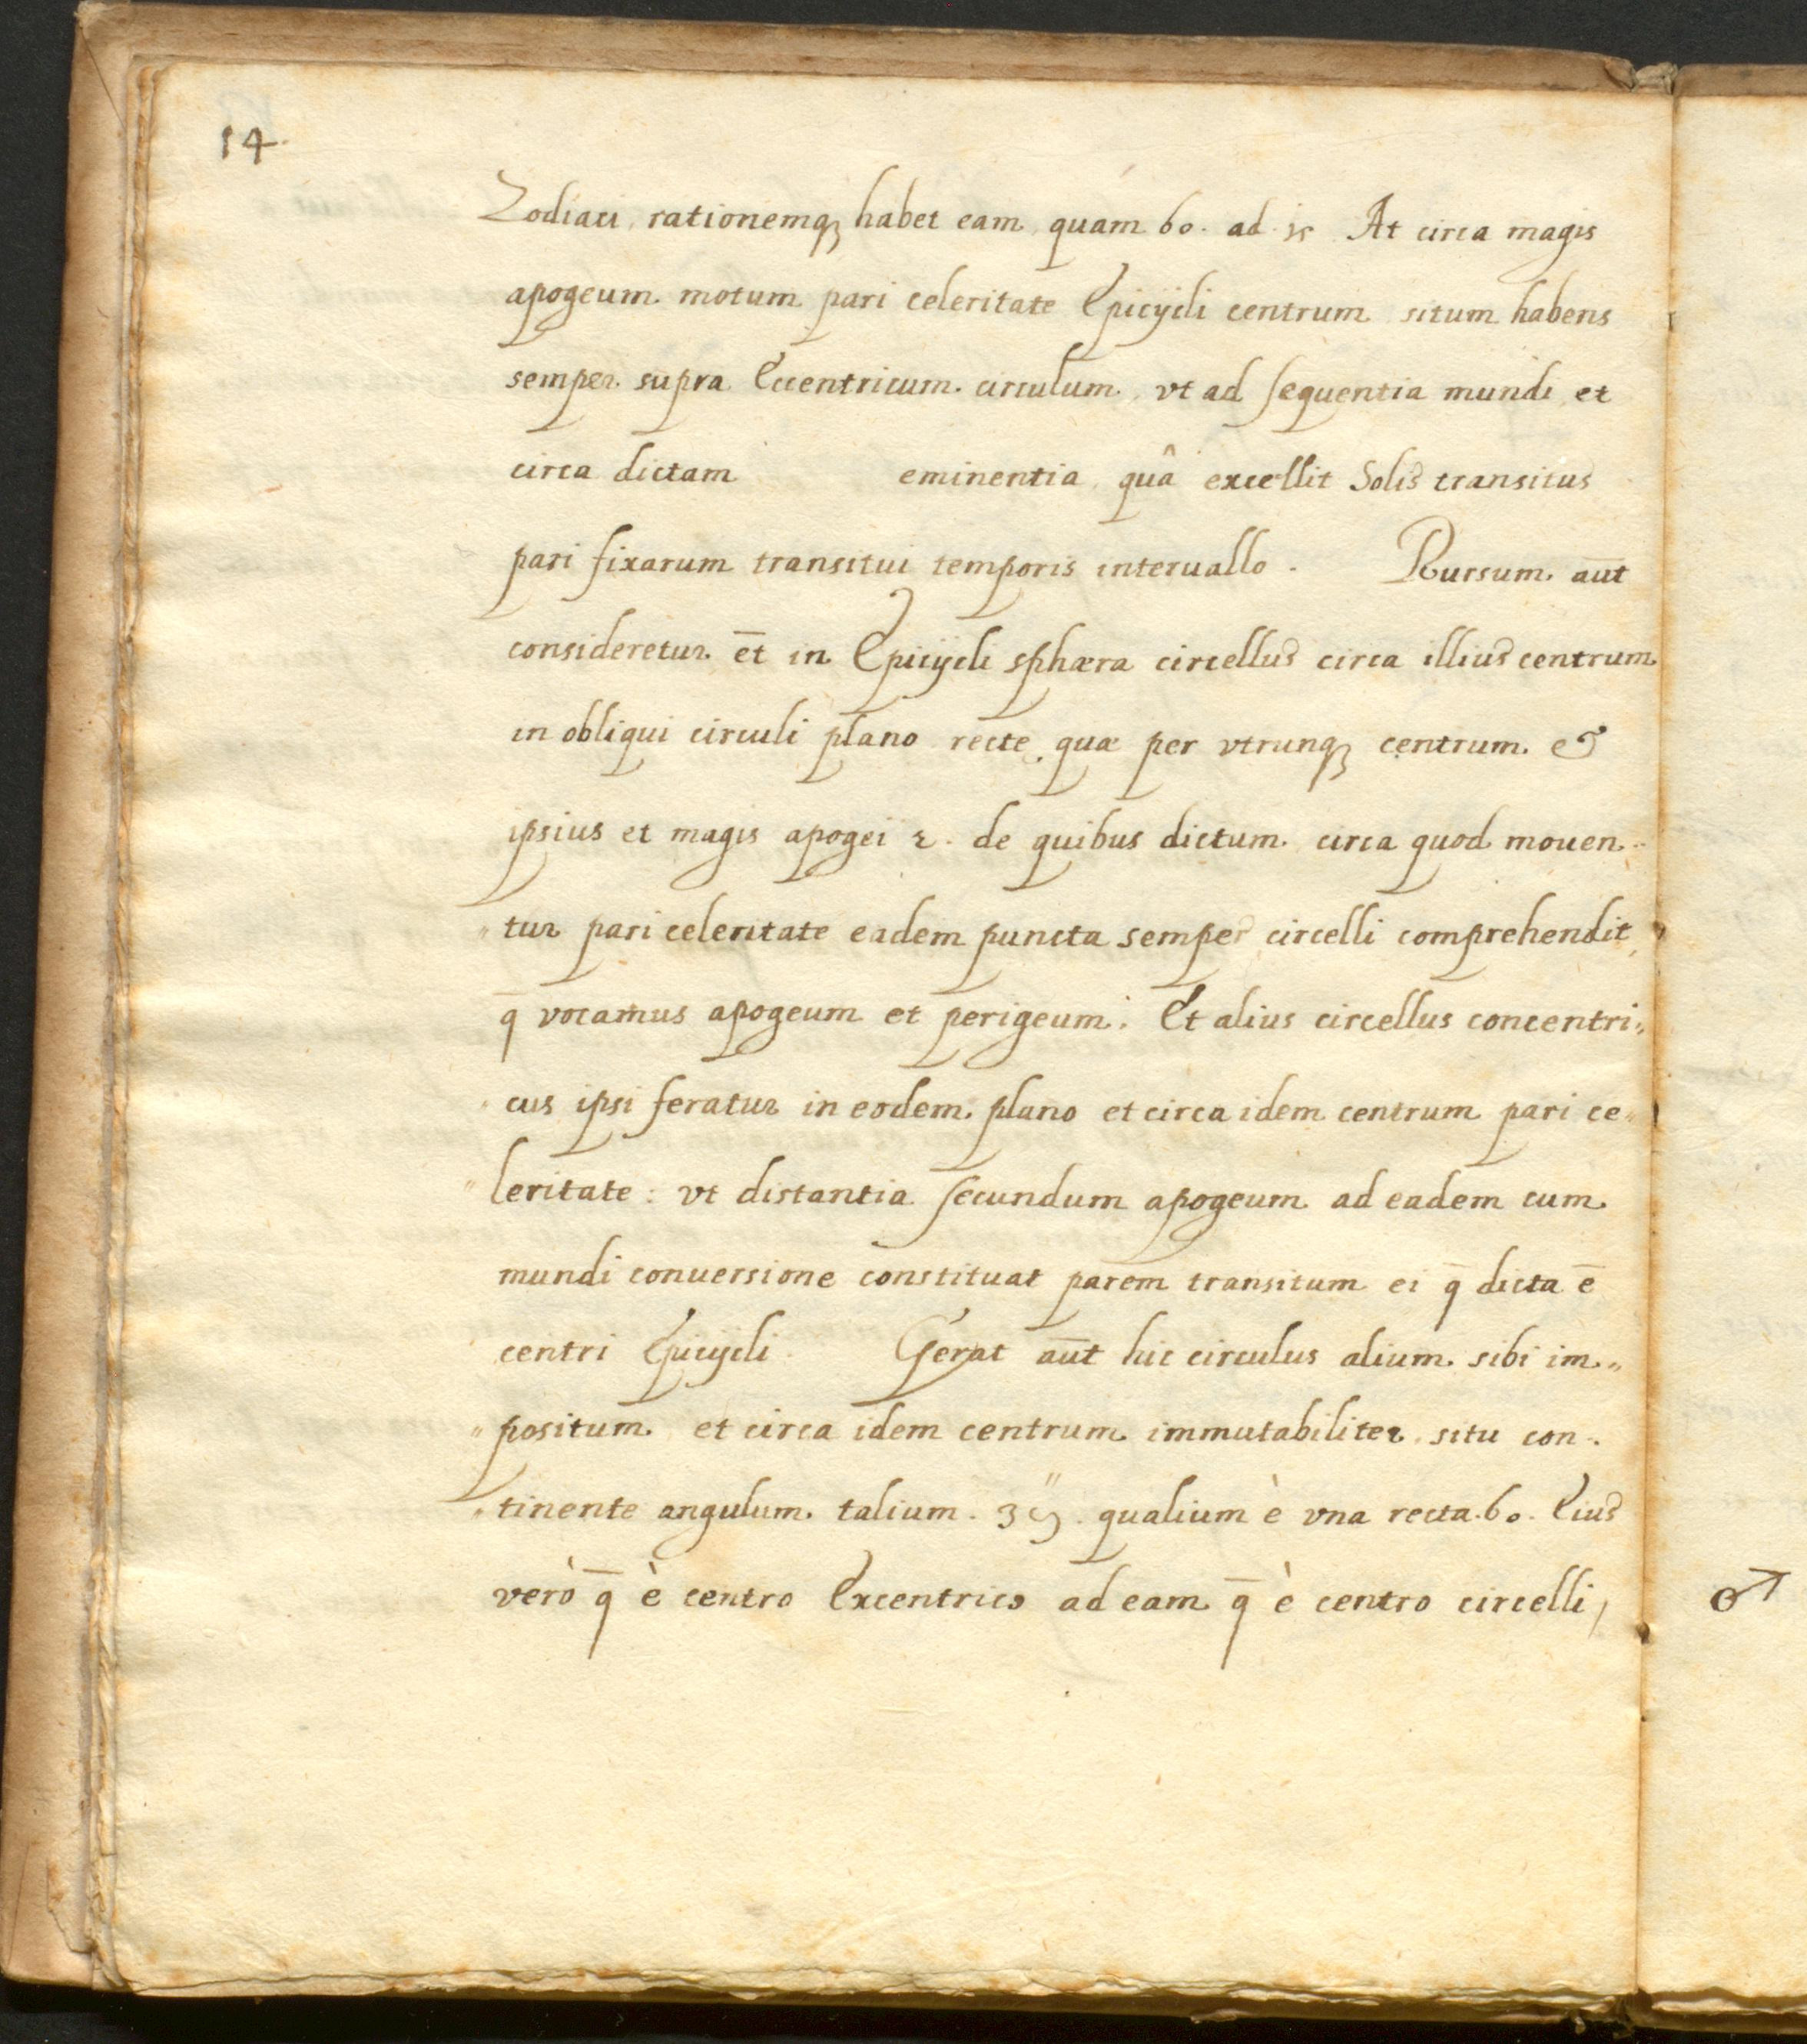 14.
Zodiaci, rationemq₃ habet eam, quam 60. ad. At circa magis
apogeum. motum pari celeritate Epicÿcli centrum situm habens
semper. supra Eccentricum. circulum. vt ad sequentia mundi et
circa dictam eminentia, quâ excellit Solis transitus
pari fixarum transitui temporis interuallo. Rursum. aut̄
consideretur. et̄ in Epicÿcli sphæra circellus circa illius centrum
in obliqui circuli plano recte, quæ per vtrunq₃ centrum. &
ipsius et magis apogei 2. de quibus dictum. circa quod mouen„
„tur pari celeritate eadem puncta semper circelli comprehendit,
q̄ vocamus apogeum et perigeum. Et alius circellus concentri„
„cus ipsi feratur in eodem. plano et circa idem centrum pari ce„
„leritate: vt distantia secundum apogeum ad eadem cum
mundi conuersione constituat parem transitum ei q̄ dicta ē
centri Epicÿcli. Gerat aut̄ hic circulus alium. sibi im„
„positum. et circa idem centrum immutabiliter situ con„
„tinente angulum. talium. qualium è vna recta. 60. Eius
verò q̄ è centro Excentrico ad eam q̄ è centro circelli,
♂